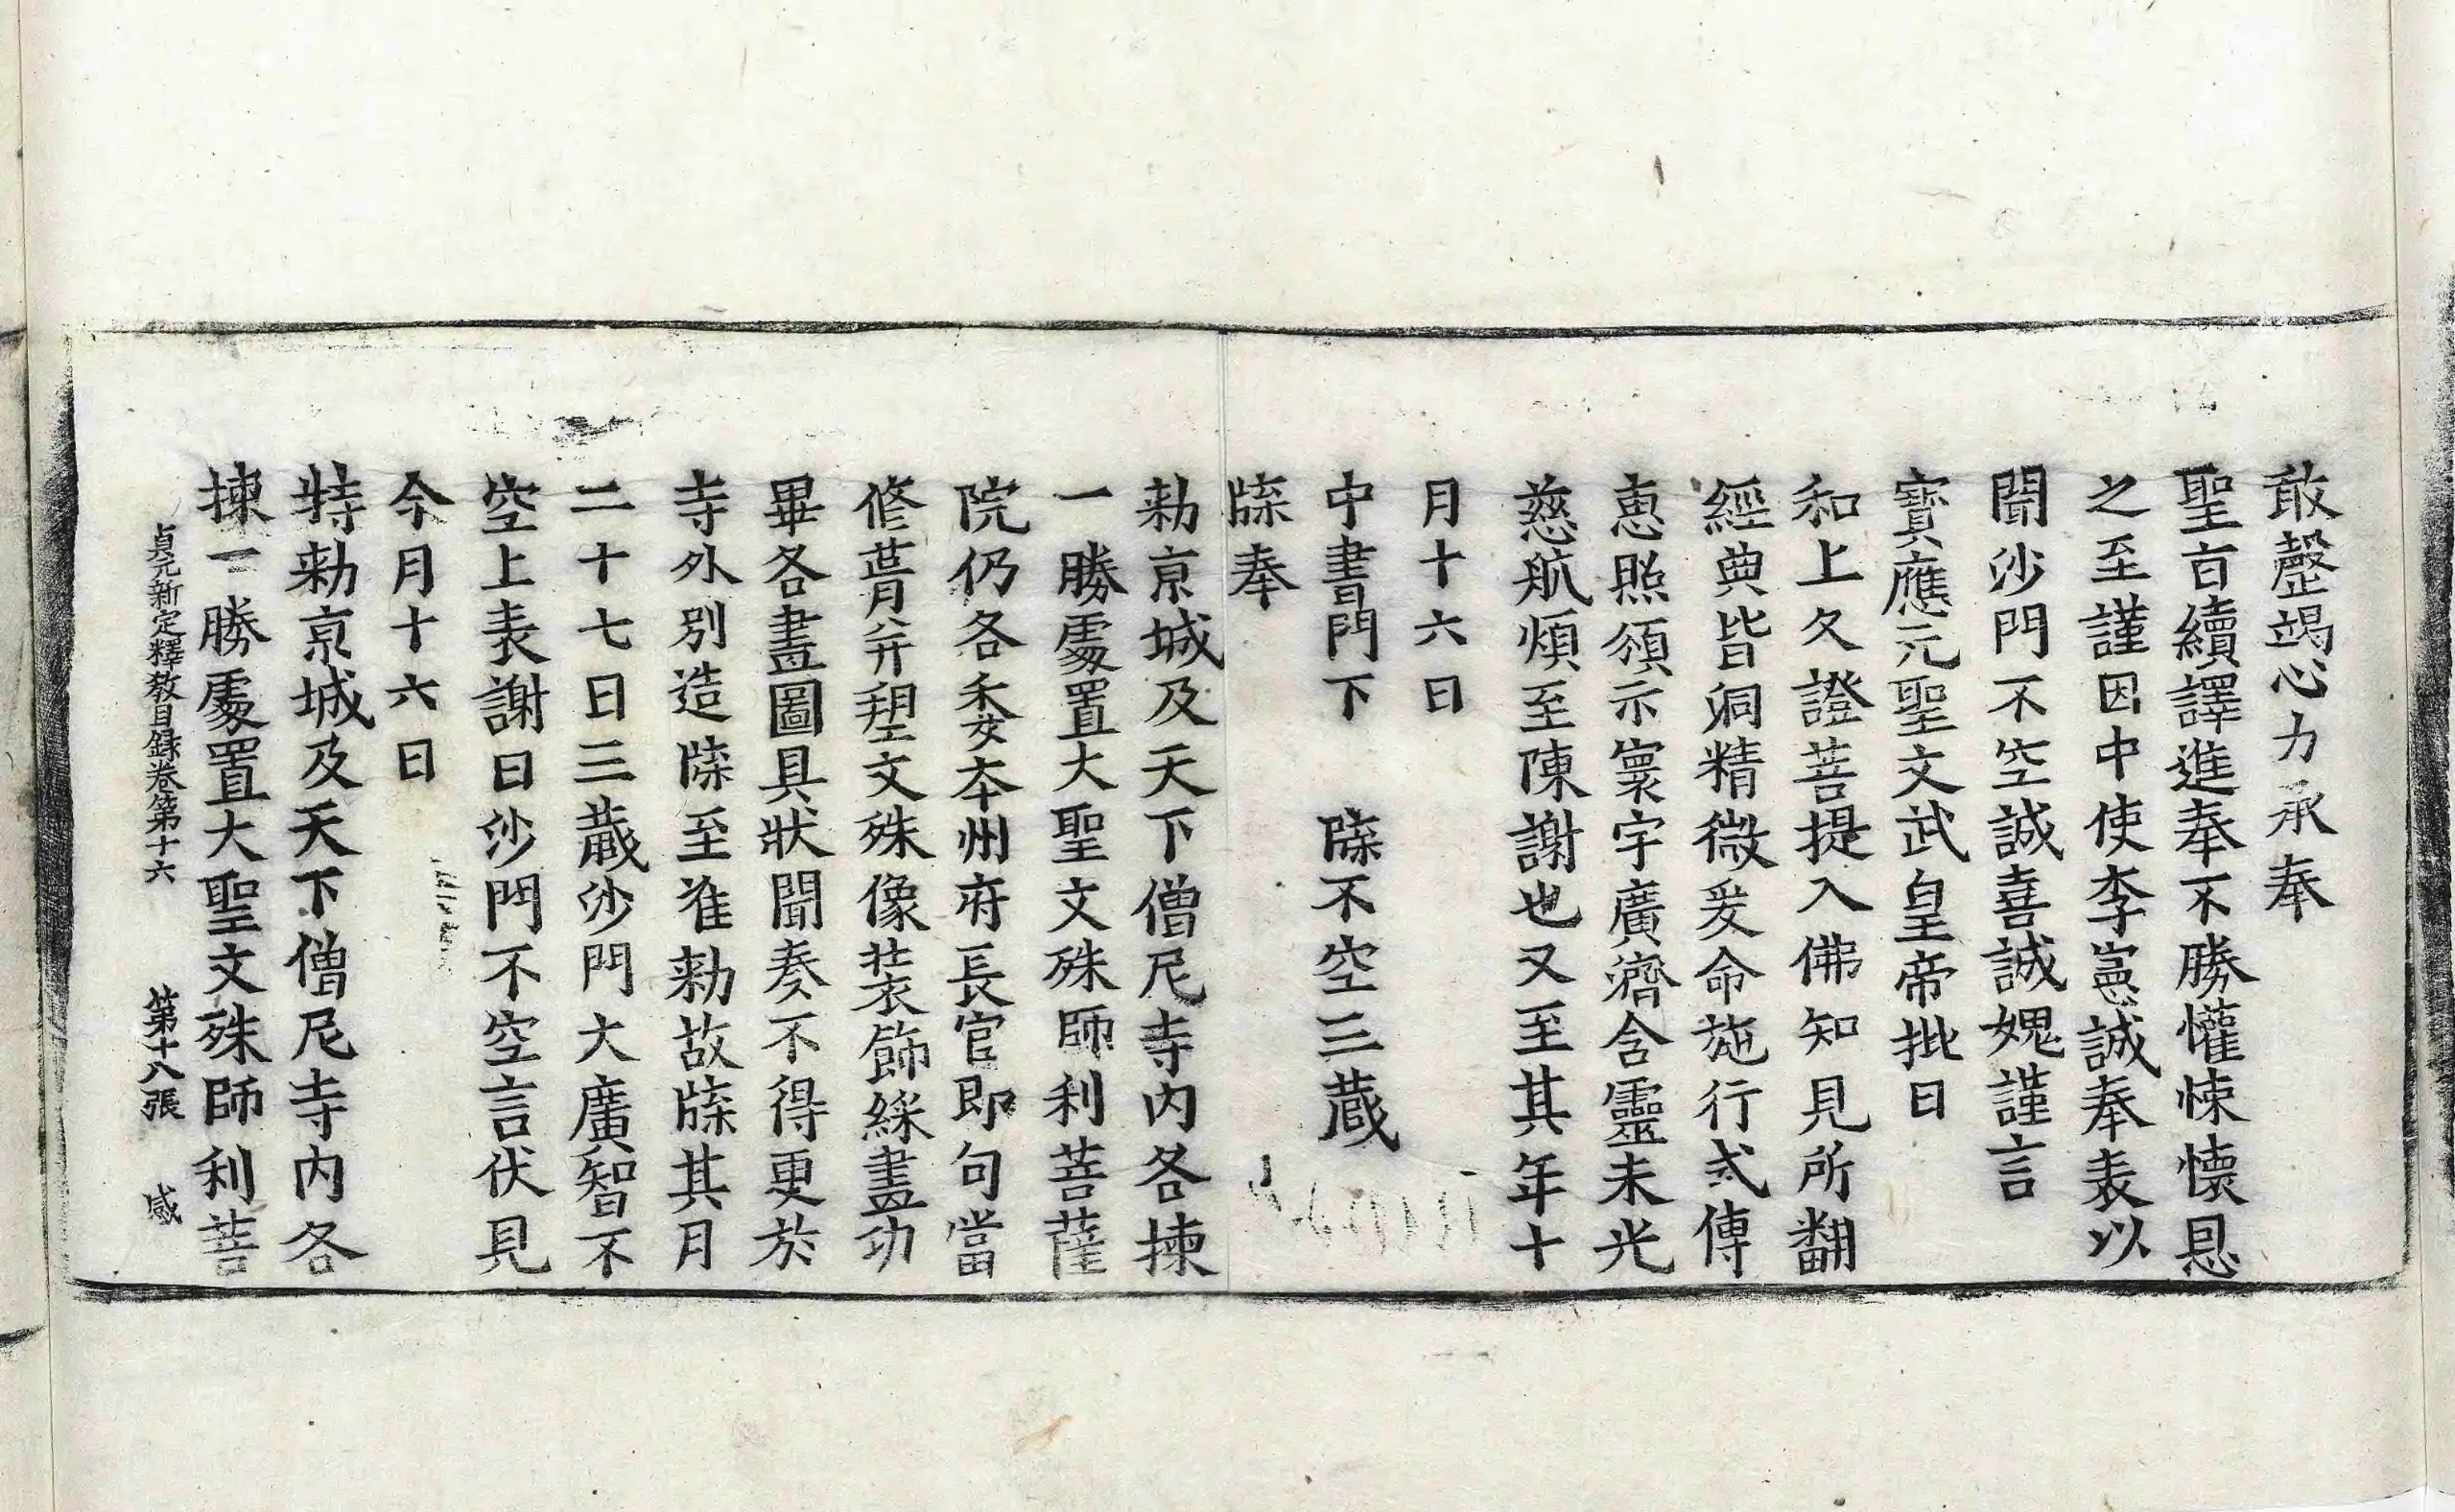 敢罄竭心力承奉
聖旨續譯進奉不勝懽悚懷恩
之至謹因中使李憲誠奉表以
聞沙門不空誠喜誠媿謹言
寶應元聖文武皇帝批曰
和上久證菩提入佛知見所翻
經典皆洞精微爰命施行式傳
恵照頒示寰宇廣濟含靈未光
慈航煩至陳謝也又至其年十
月十六日
中書門下　牒不空三蔵
牒奉
勑京城及天下僧尼寺內各揀
一勝處置大聖文殊師利菩薩
院仍各委本州府長官即句當
修葺并塑文殊像装飾綵畫功
畢各畫圖具狀聞奏不得更於
寺外別造牒至准勑故牒其月
二十七日三蔵沙門大廣智不
空上表謝曰沙門不空言伏見
今月十六日
特勑京城及天下僧尼寺内各
揀一勝處置大聖文殊師利菩
貞元新定釋教目録卷第十六　第十八張　感